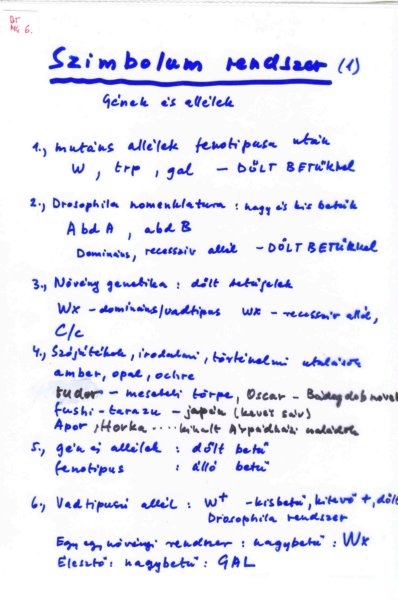 BT
Mg 6.
Szimbolum rendszer (1)
Gének és allélek
1., mutáns allélek fenotipusa után
W, trp, gal – DŐLT BETŰKKEL
2., Drosophila nomenklatura : nagy és kis betűk
Abd A, abd B
Domináns, recessziv allél – DŐLT BETŰKKEL
3., Növény genetika : dőlt betűjelek
Wx – domináns/vadtipus wx – recessziv allél,
C/c
4., Szójátékok, irodalmi, történelmi utalások
amber, opal, ochre
tudor – mesebeli törpe, Oscar – Bádogdob novel
fushi-tarazu – japán (kevés sáv)
Apor, Horka .... kihalt Árpádházi családok
5., gén és allélek : dőlt betű
fenotipus : álló betű
6., Vadtipusú allél : W+ – kisbetű, kitevő +, dőlt
Drosophila rendszer
Egy egy növényi rendszer : nagybetű : Wx
Élesztő : nagybetű : GAL